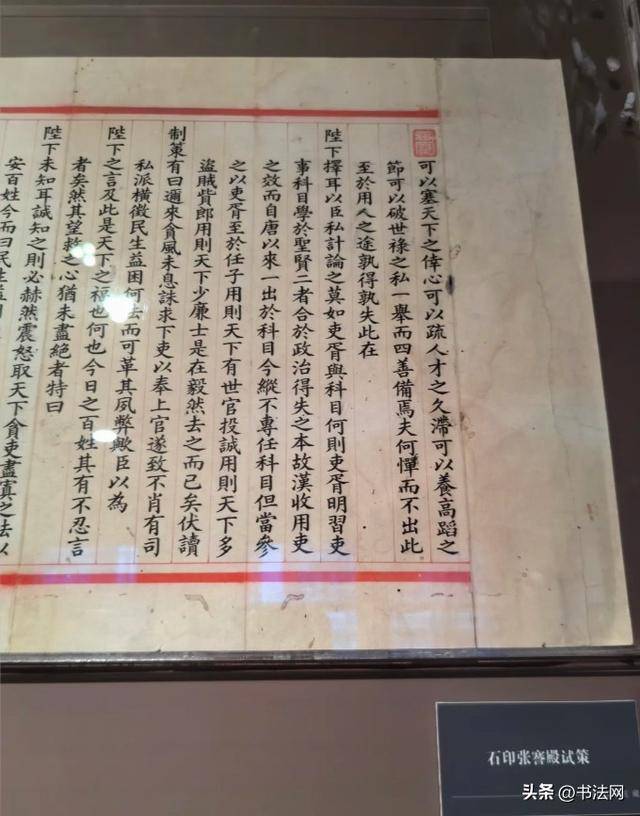 可以塞天下之倖心可以疏人才之久滯可以養高蹈之
節可以破世祿之私一舉而四善備焉夫何憚而不出此
至於用人之途孰得孰失此在
陛下擇耳以臣私計論之莫如吏胥與科目何則吏胥明習吏
事科目學於聖賢二者合於政治得失之本故漢收用吏
之效而自唐以來一出於科目今縱不專任科目但當參
之以吏胥至於任子用則天下有世官投誠用則天下多
盜賊貲郎用則天下少廉士是在毅然去之而已矣伏讀
制策有曰邇來貪風未息誅求下吏以奉上官遂致不肖有司
私派橫徵民生益困何法而可革其夙弊歟臣以為
陛下之言及此是天下之福也何也今日之百姓其有不忍言
者矣然其望救之心猶未盡絕者特曰
陛下未知耳誠知之則必赫然震怒取天下貪吏盡寘之法以
安百姓今而曰民生益
石印张謇殿试策
头条 @书法网